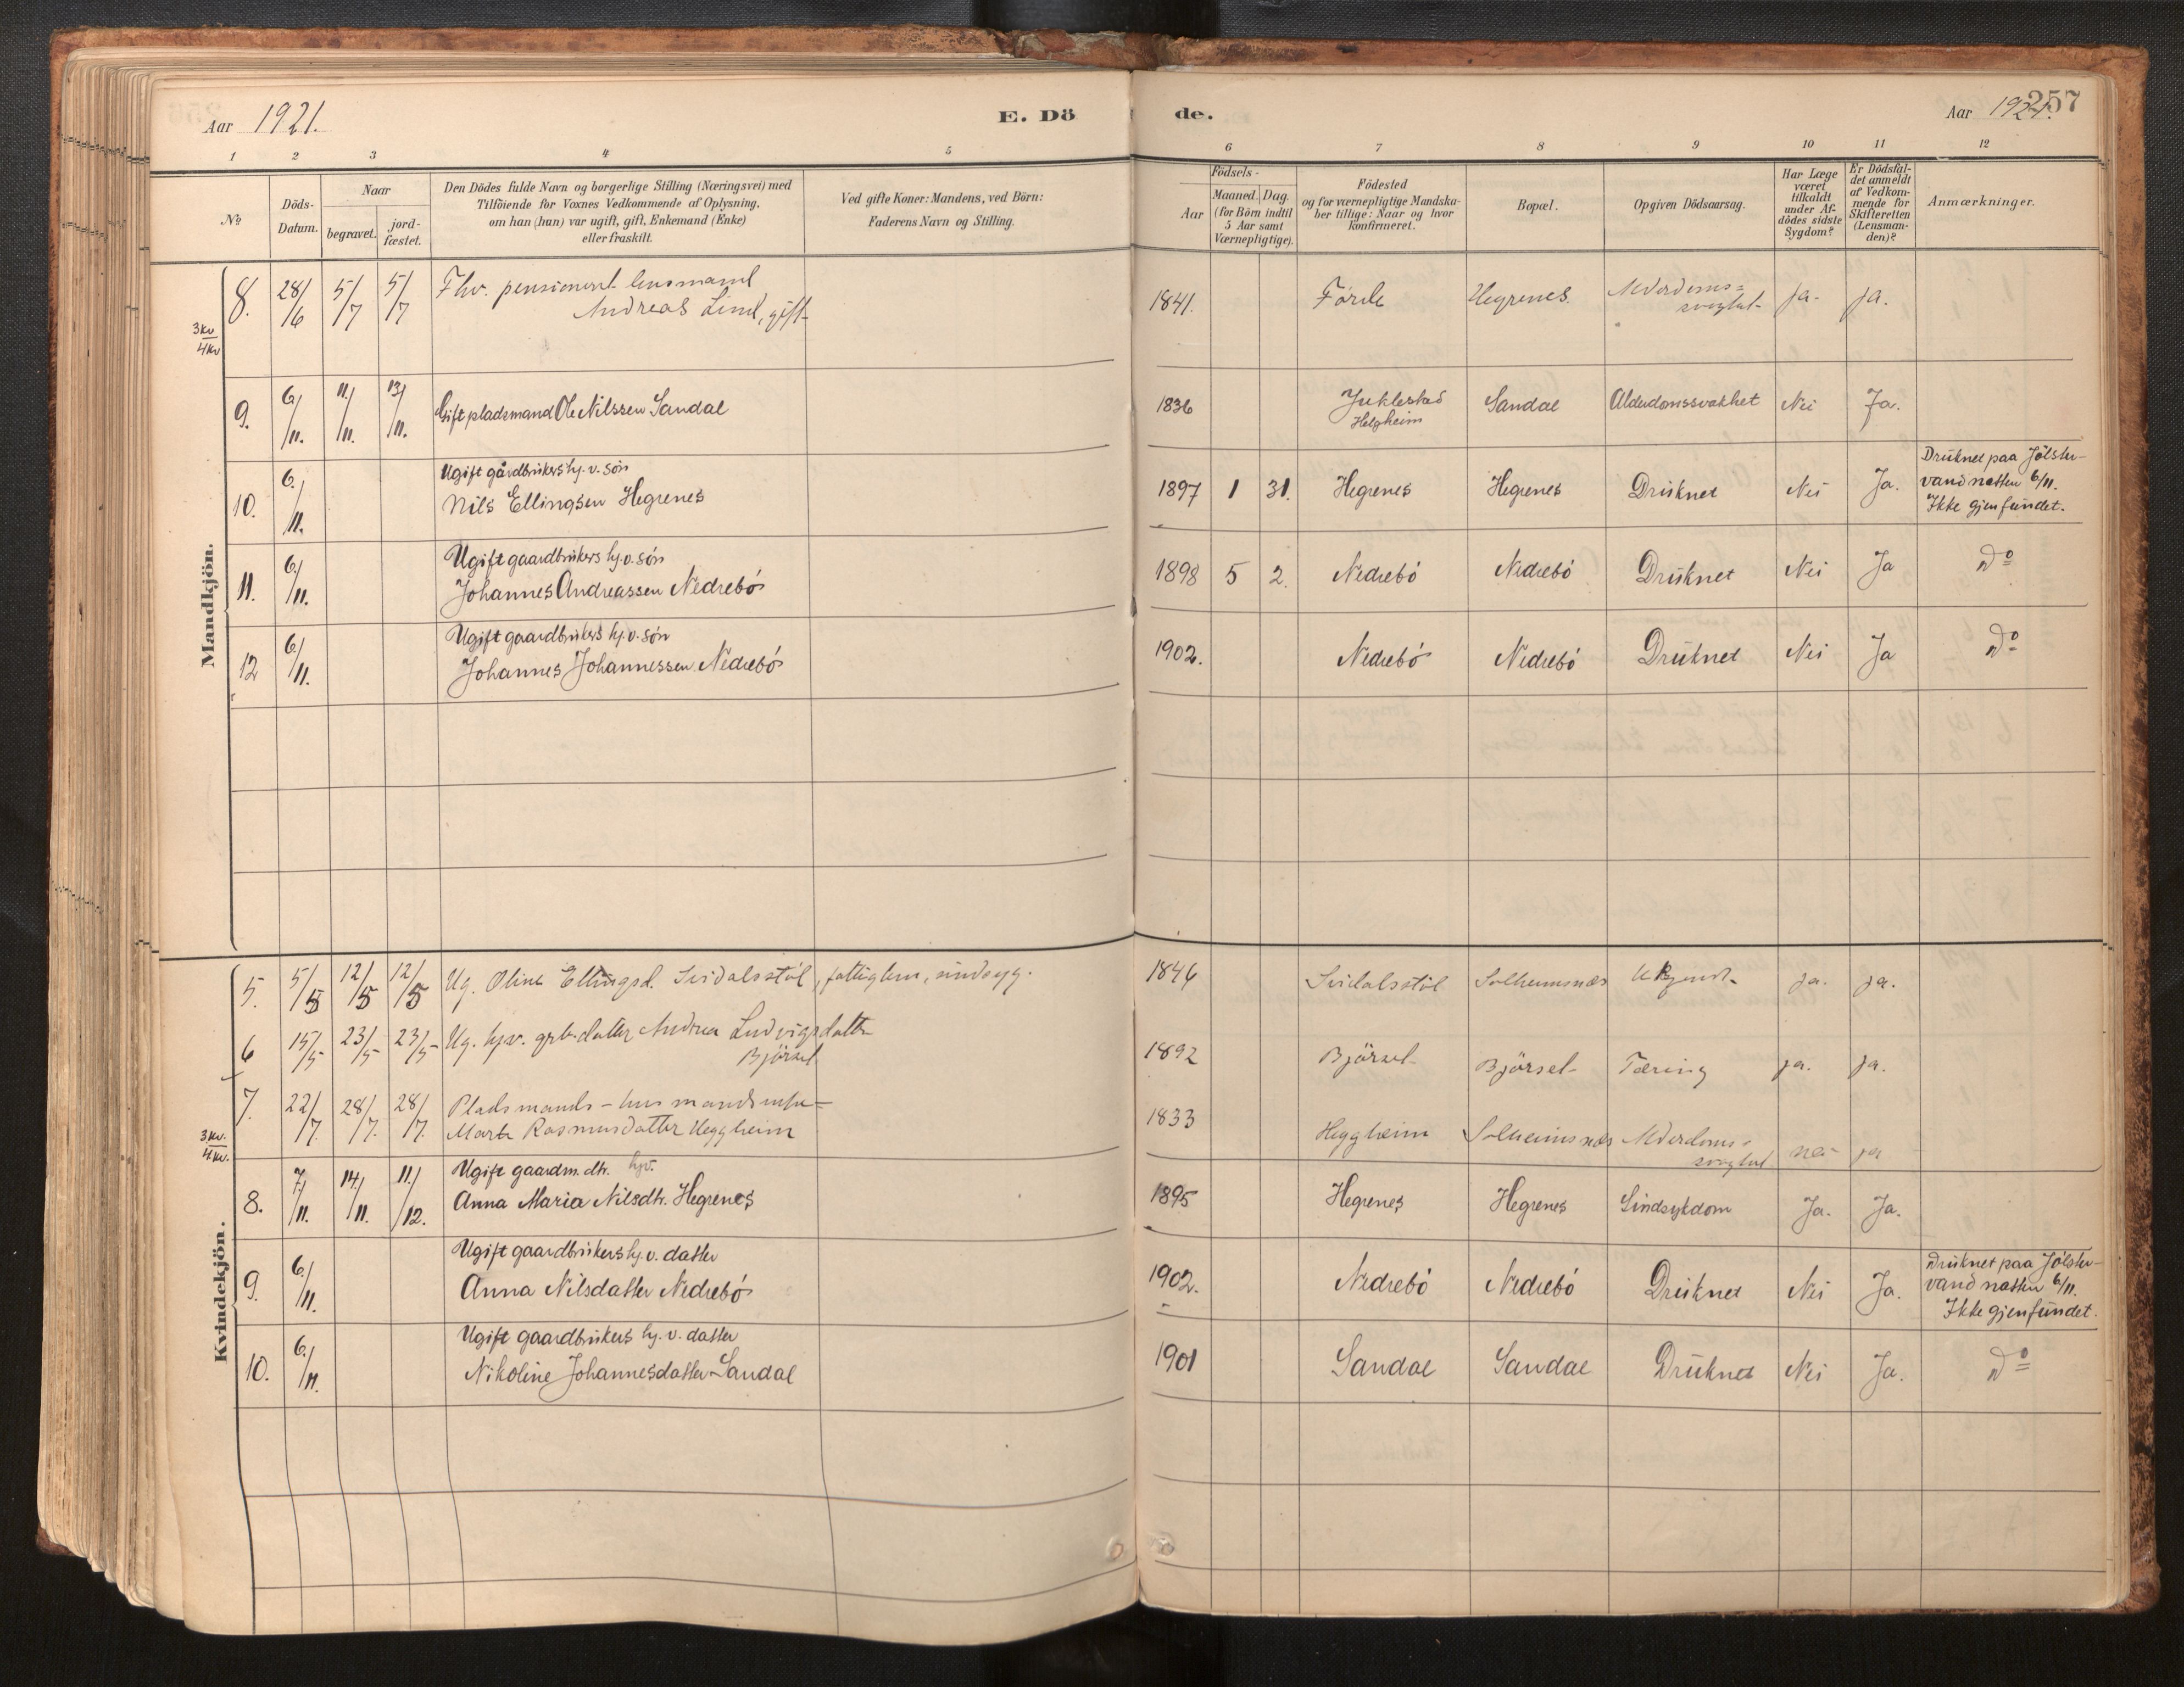 Aar 1921.
E. Dö
de.
Aar 1921.
257
1 2 3 4 5 6 7 8 9 10 11 12
№
Döds-
Datum.
Naar
begravet.
jord-
fæstet.
Den Dödes fulde Navn og borgerlige Stilling (Næringsvei) med
Tilföiende for Voxnes Vedkommende af Oplysning,
om han (hun) var ugift, gift, Enkemand (Enke)
eller fraskilt.
Ved gifte Koner: Mandens, ved Börn:
Faderens Navn og Stilling.
Födsels-
Aar
Maaned. Dag.
(for Börn indtil
5 Aar samt
Værnepligtige).
Födested
og for værnepligtige Mandska-
ber tillige: Naar og hvor
konfirmeret.
Bopæl.
Opgiven Dödsaarsag.
Har Læge
været
tilkaldt
under Af-
dödes sidste
Sygdom?
Er Dödsfal-
det anmeldt
af Vedkom-
mende for
Skifteretten
(Lensman-
den)?
Anmærkninger.
Mandkjön.
3 Kv
4 Kv
8. 28/6 5/7 5/7 Fhv. pensioneret lensmand
Andreas Lind, gift
1841. Förde Hegrenes. Alderdoms=
svaghet ja. ja.
9. 6/11. 11/11. 13/11. Gift pladsmand Ole Nilssen Sandal 1836 Juklestad
Helgheim Sandal Alderdomssvakhet Nei Ja.
10. 6/11. Ugift gårdbrukers hj. v. sön
Nils Ellingsen Hegrenes 1897 1 31. Hegrenes Hegrenes Druknet Nei Ja. Druknet paa Jölster-
vand natten 6/11.
Ikke gjenfundet.
11. 6/11. Ugift gaardbrukers hj. v. sön
Johannes Andreassen Nedrebö 1898 5 2. Nedrebö Nedrebö Druknet Nei Ja Do
12 6/11. Ugift gaardbrukers hj. v. sön
Johannes Johannessen Nedrebö 1902. Nedrebö Nedrebö Druknet Nei Ja Do
Kvindekjön.
5. 5/5 12/5 12/5 Ug. Oline Ellingsd. Svidalsstöl, fattiglem, sindssyg. 1846 Svidalsstöl Solheimsnæs Ukjendt ja. ja.
6 15/5 23/5 23/5 Ug. hjv. grb. datter Andrea Ludvigsdatter
Björsel 1892 Björsel Björsel Tæring ja. ja.
3 Kv.
4 Kv.
7. 22/7. 28/7. 28/7. Pladsmands-husmandsenke
Marta Rasmusdatter Heggheim 1833 Heggheim Solheimsnæs Alderdoms-
svaghet nei ja
8. 7/11. 14/11. 11/12. Ugift gaardm. dtr. hjv.
Anna Maria Nilsdtr. Hegrenes 1895 Hegrenes Hegrenes Sindsykdom Ja. Ja.
9. 6/11. Ugift gaardbrukers hj. v. datter
Anna Nilsdatter Nedrebö 1902. Nedrebö Nedrebö Druknet Nei Ja. Druknet paa Jölster-
vand natten 6/11.
Ikke gjenfundet.
10. 6/11. Ugift gaardbrukers hj. v. datter
Nikoline Johannesdatter Sandal 1901 Sandal Sandal Druknet Nei Ja. Do